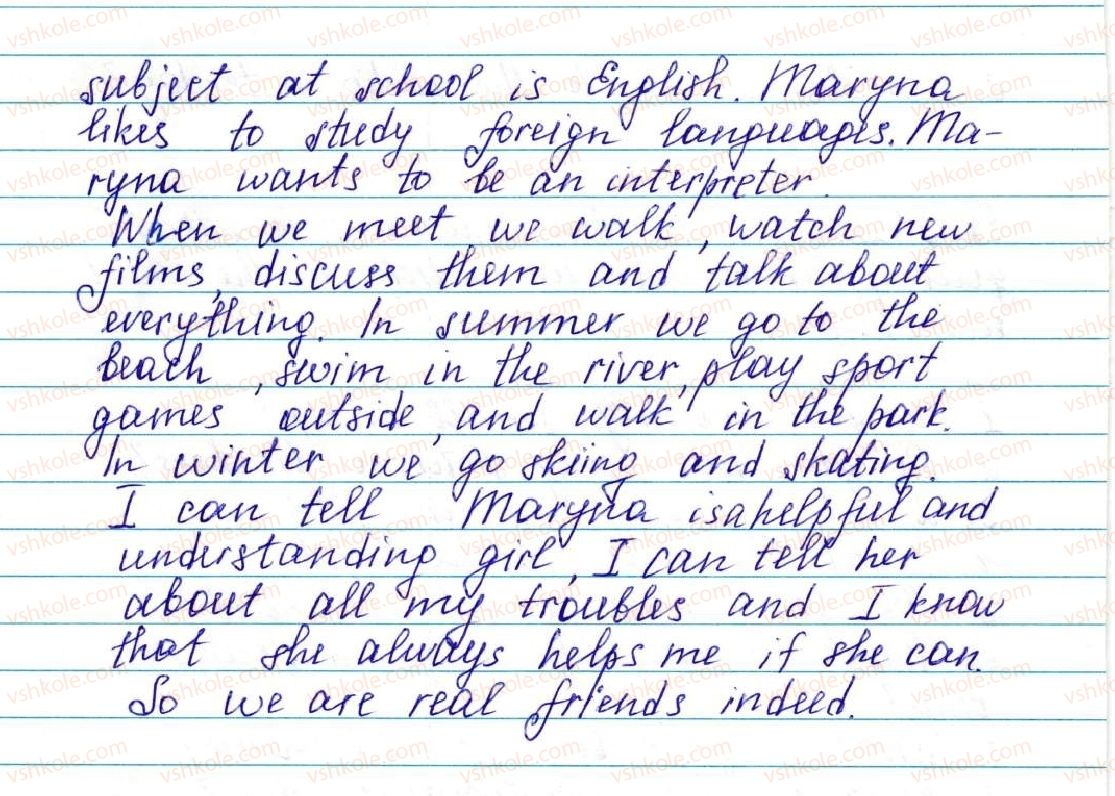 subject at school is English. Maryna
likes to study foreign languages. Ma-
ryna wants to be an interpreter.
When we meet we walk, watch new
films, discuss them and talk about
everything. In summer we go to the
beach, swim in the river, play sport
games outside, and walk in the park.
In winter we go skiing and skating.
I can tell Maryna is a helpful and
understanding girl, I can tell her
about all my troubles and I know
that she always helps me if she can.
So we are real friends indeed.